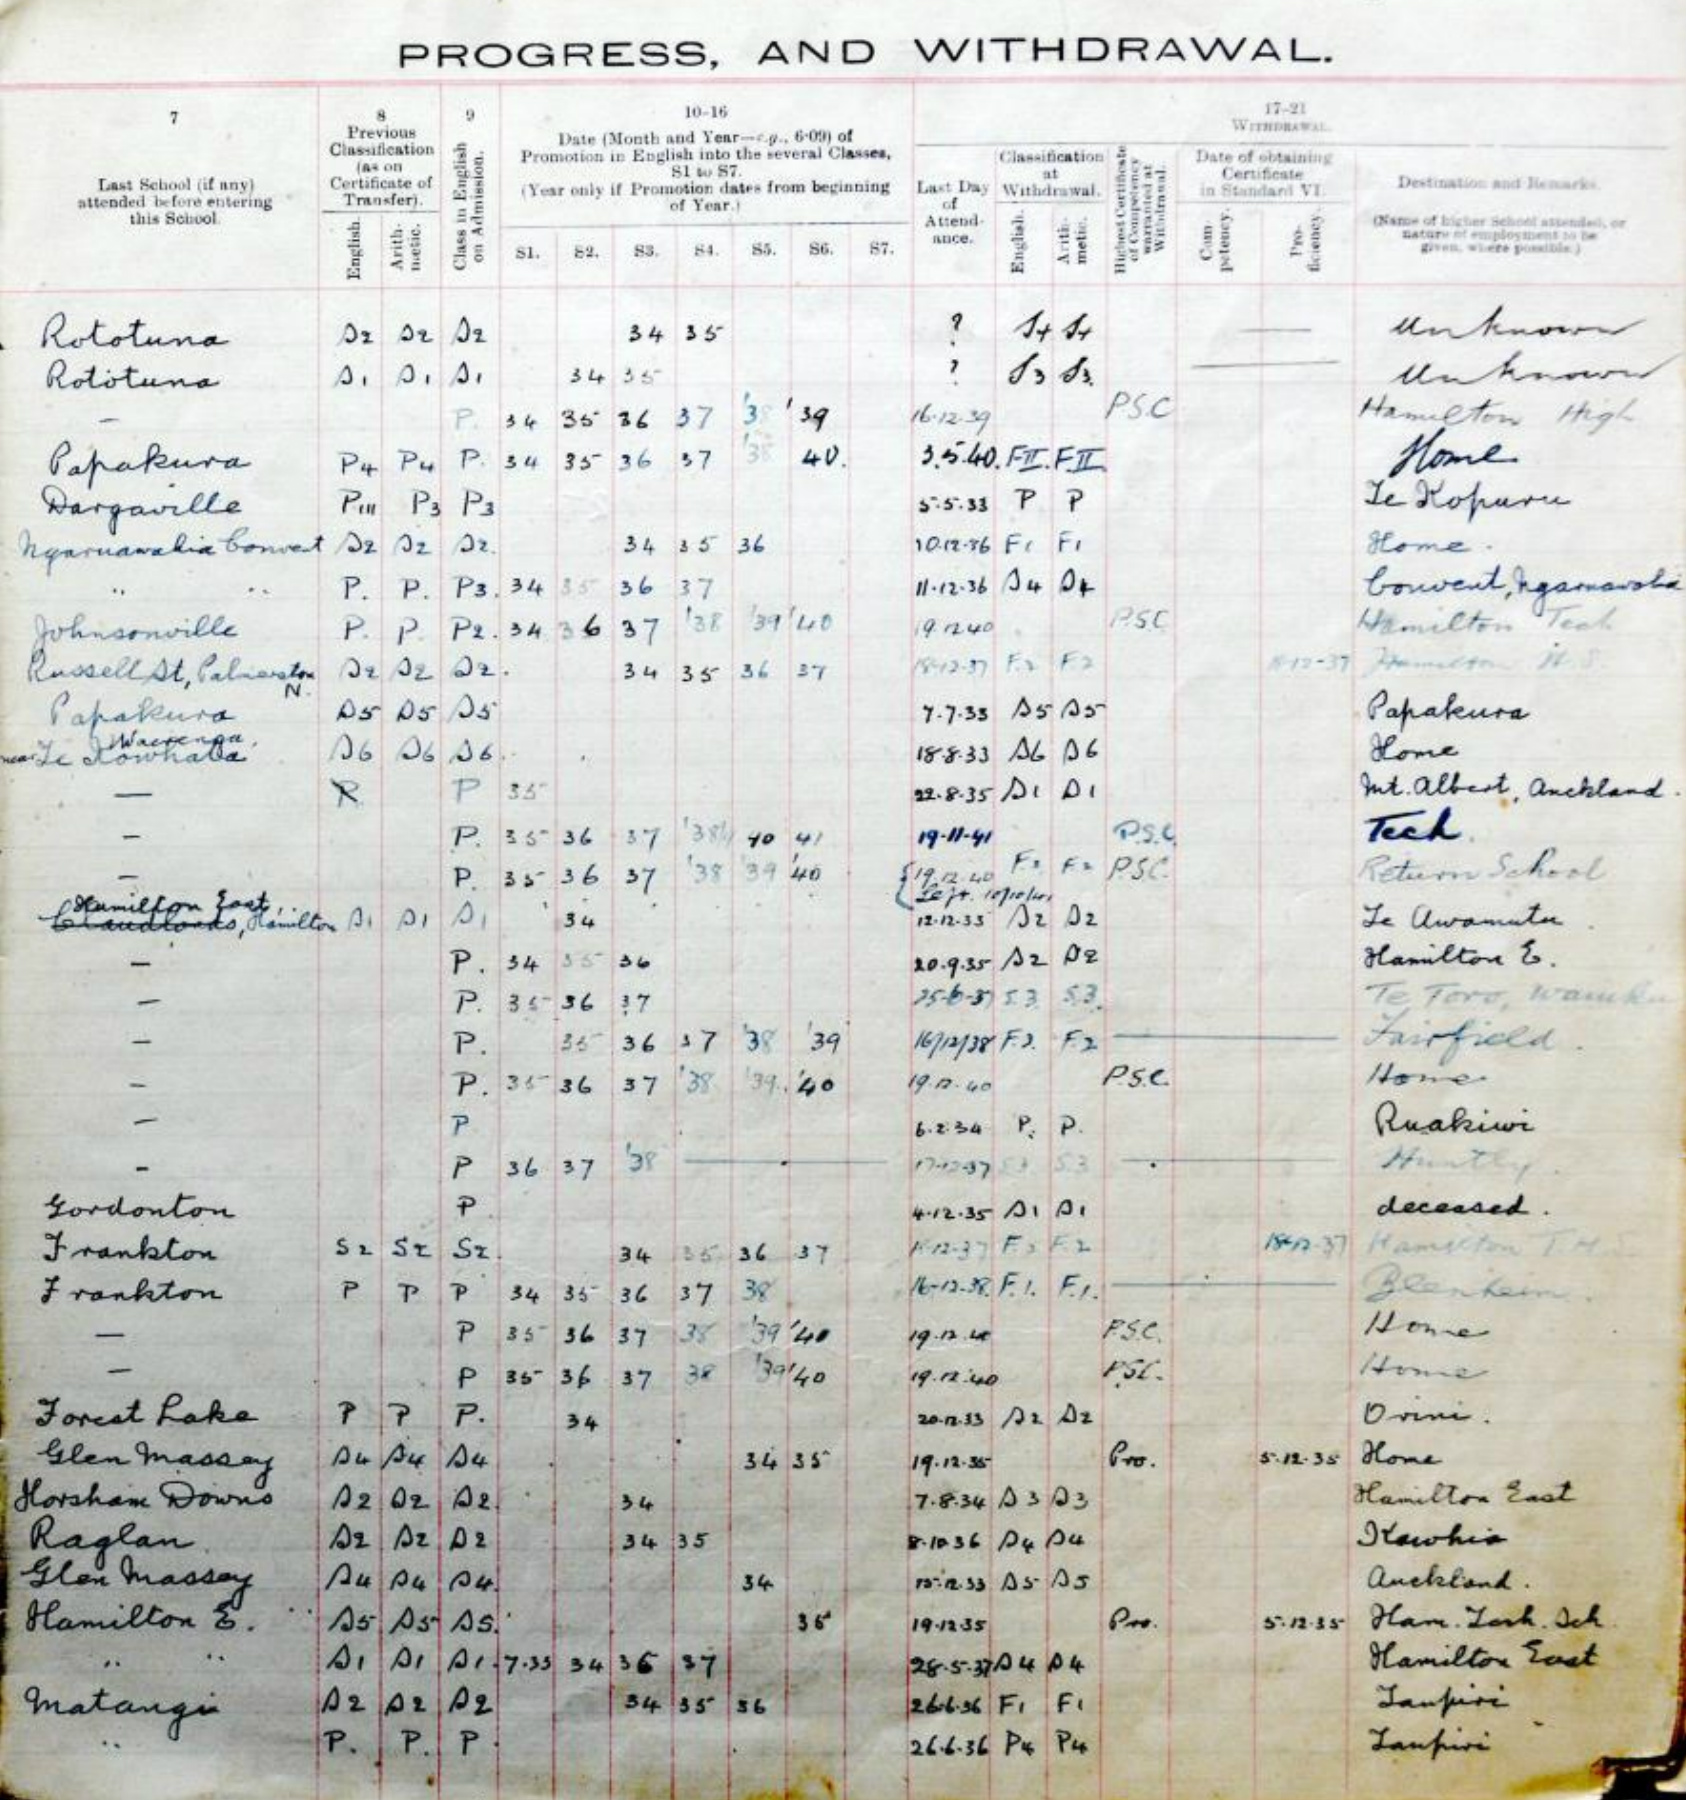 PROGRESS, AND WITHDRAWAL.
7
Last School (if any) attended before entering this School.
8
Previous Classification (as on Certificate of Transfer).
English.
Arithmetic.
9
Class in English on Admission.
10-16
Date (Month and Year—e.g., 6·09) of Promotion in English into the several Classes, S1 to S7.
(Year only if Promotion dates from beginning of Year.)
S1. S2. S3. S4. S5. S6. S7.
17-21
WITHDRAWAL.
Last Day of Attendance.
Classification at Withdrawal.
English.
Arithmetic.
Highest Certificate of Competency warranted at Withdrawal.
Date of obtaining Certificate in Standard VI.
Competency.
Proficiency.
Destination and Remarks.
(Name of higher School attended, or nature of employment to be given, where possible.)
Rototuna S2 S2 S2 34 35 ? S4 S4 — Unknown
Rototuna S1 S1 S1 34 35 ? S3 S3. — Unknown
— P. 34 35 36 37 '38 '39 16·12·39 P.S.C Hamilton High
Papakura P4 P4 P. 34 35 36 37 '38 40. 3.5.40. FII. FII Home
Dargaville PIII P3 P3 5·5·33 P P Te Kopuru
Ngaruawahia Convent S2 S2 S2. 34 35 36 10·12·36 F1 F1 Home.
" " P. P. P3. 34 35 36 37 11·12·36 S4 S4 Convent, Ngaruawahia
Johnsonville P. P. P2. 34 36 37 '38 '39 '40 19.12.40 P.S.C. Hamilton Tech
Russell St, Palmerston N. S2 S2 S2. 34 35 36 37 18-12-37 F.2 F2 18-12-37 Hamilton H.S.
Papakura S5 S5 S5 7·7·33 S5 S5 Papakura
Waerenga,
near Te Kowhata S6 S6 S6. 18·8·33 S6 S6 Home
— P 35 22·8·35 S1 S1 Mt. Albert, Auckland.
— P. 35 36 37 '38 40 41 19-11-41 P.S.C. Tech.
— P. 35 36 37 '38 '39 '40 19.12.40 F2 F2 P.S.C. Return School
Left. 10/10/41
Hamilton East,
Claudlands, Hamilton S1 S1 S1 34 12·12·33 S2 S2 Te Awamutu.
— P. 34 35 36 20·9·35 S2 S2 Hamilton E.
— P. 35 36 37 25-6-37 S.3 S.3. Te Toro, Waiuku
— P. 35 36 37 '38 '39 16/12/38 F.2. F.2 — Fairfield.
— P. 35 36 37 '38 '39. '40 19.12.40 P.S.C. Home
— P 6·2·34 P. P. Ruakiwi
— P 36 37 '38 — 17-12-37 S3 S3 — Huntly.
Gordonton P 4·12·35 S1 S1 deceased.
Frankton S2 S2 S2. 34 35 36 37 18-12-37 F.2 F.2 18-12-37 Hamilton T.H.
Frankton P P P 34 35 36 37 38 16-12-38. F.1. F.1. — Blenheim.
— P 35 36 37 38 '39 '40 19.12.40 P.S.C. Home
— P 35 36 37 38 '39 '40 19.12.40 P.S.C. Home
Forest Lake P P P. 34 20·12·33 S2 S2 Orini.
Glen Massey S4 S4 S4 34 35 19·12·35 Pro. 5·12·35 Home
Horsham Downs S2 S2 S2 34 7·8·34 S3 S3 Hamilton East
Raglan S2 S2 S2 34 35 8·10·36 S4 S4 Kawhia
Glen Massey S4 S4 S4. 34 15·12·33 S5 S5 Auckland.
Hamilton E. S5 S5 S5. 35 19·12·35 Pro. 5·12·35 Ham. Tech. Sch
" " S1 S1 S1 7·33 34 36 37 28·5·37 S4 S4 Hamilton East
Matangi S2 S2 S2 34 35 36 26·6·36 F1 F1 Taupiri
" P. P. P 26·6·36 P4 P4 Taupiri